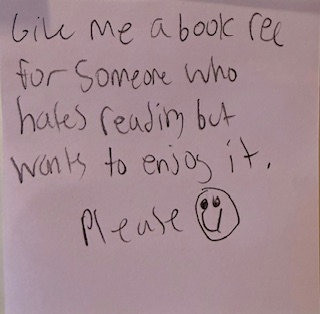 Give me a book rec
for someone who
hates reading but
wants to enjoy it.
Please